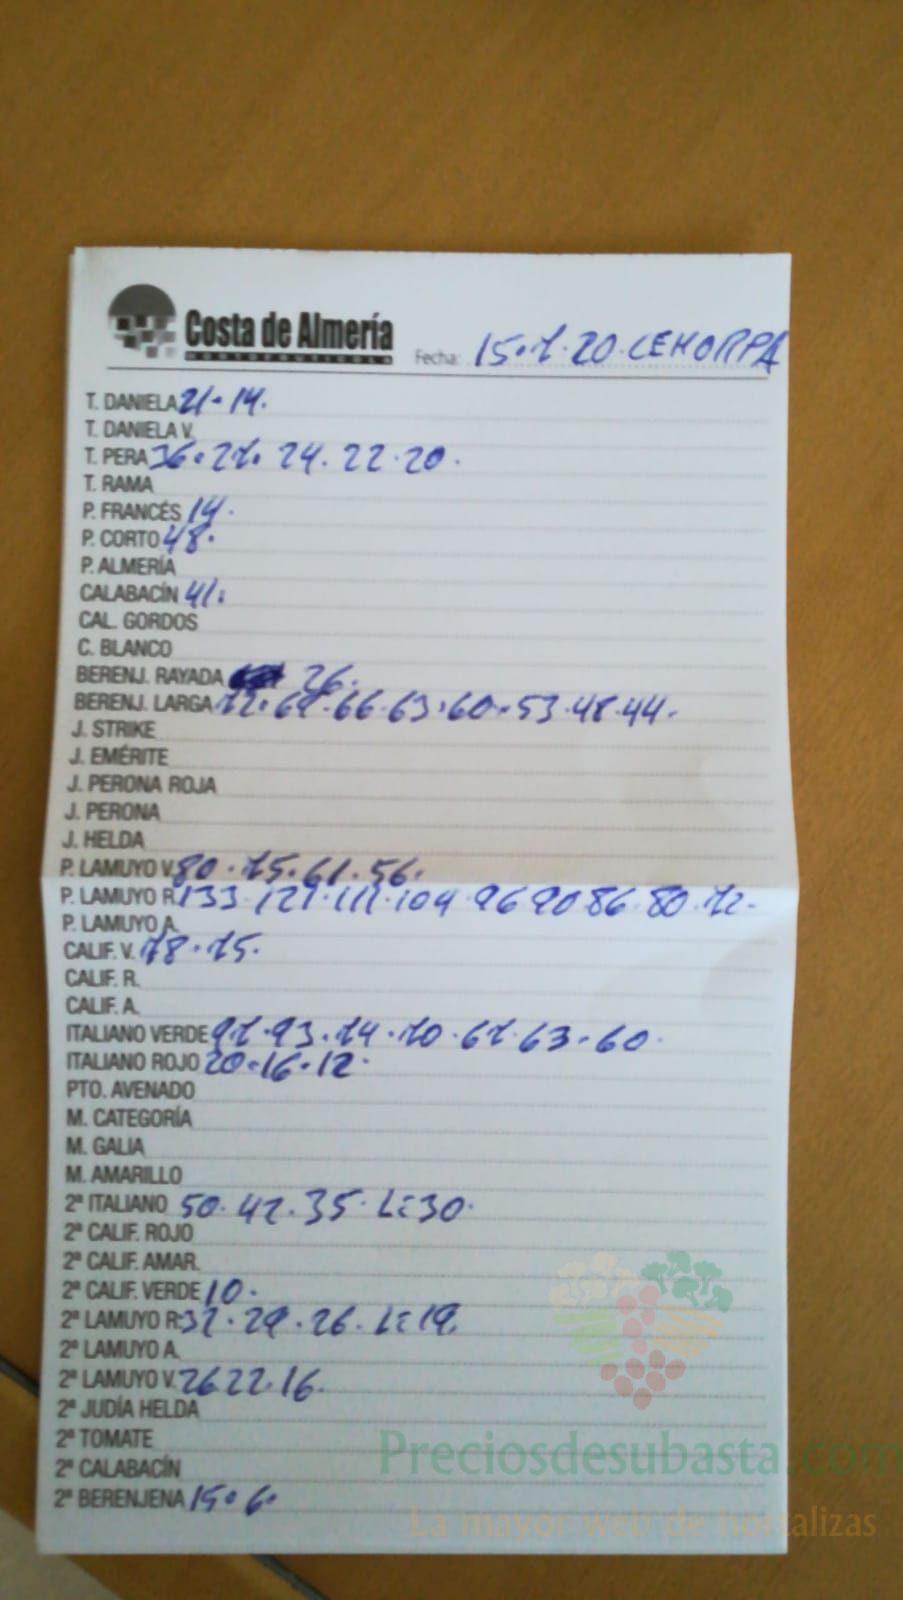 Costa de Almería
HORTOFRUTICOLA
Fecha: 15.7.20. CEHORPA
T. DANIELA 21. 14.
T. DANIELA V.
T. PERA 36. 27. 24. 22. 20.
T. RAMA
P. FRANCÉS 14.
P. CORTO 48.
P. ALMERÍA
CALABACÍN 41.
CAL. GORDOS
C. BLANCO
BERENJ. RAYADA 26.
BERENJ. LARGA 72. 69. 66. 63. 60. 53. 48. 44.
J. STRIKE
J. EMÉRITE
J. PERONA ROJA
J. PERONA
J. HELDA
P. LAMUYO V. 80. 75. 61. 56.
P. LAMUYO R. 133. 121. 111. 104. 96 90 86. 80. 72.
P. LAMUYO A.
CALIF. V. 78. 75.
CALIF. R.
CALIF. A.
ITALIANO VERDE 97. 93. 74. 70. 67. 63. 60.
ITALIANO ROJO 20. 16. 12.
PTO. AVENADO
M. CATEGORÍA
M. GALIA
M. AMARILLO
2ª ITALIANO 50. 42. 35. L: 30.
2ª CALIF. ROJO
2ª CALIF. AMAR.
2ª CALIF. VERDE 10.
2ª LAMUYO R. 32. 29. 26. L: 19.
2ª LAMUYO A.
2ª LAMUYO V. 26 22. 16.
2ª JUDÍA HELDA
2ª TOMATE
2ª CALABACÍN
2ª BERENJENA 15. 6.
Preciosdesubasta.com
La mayor web de hortalizas